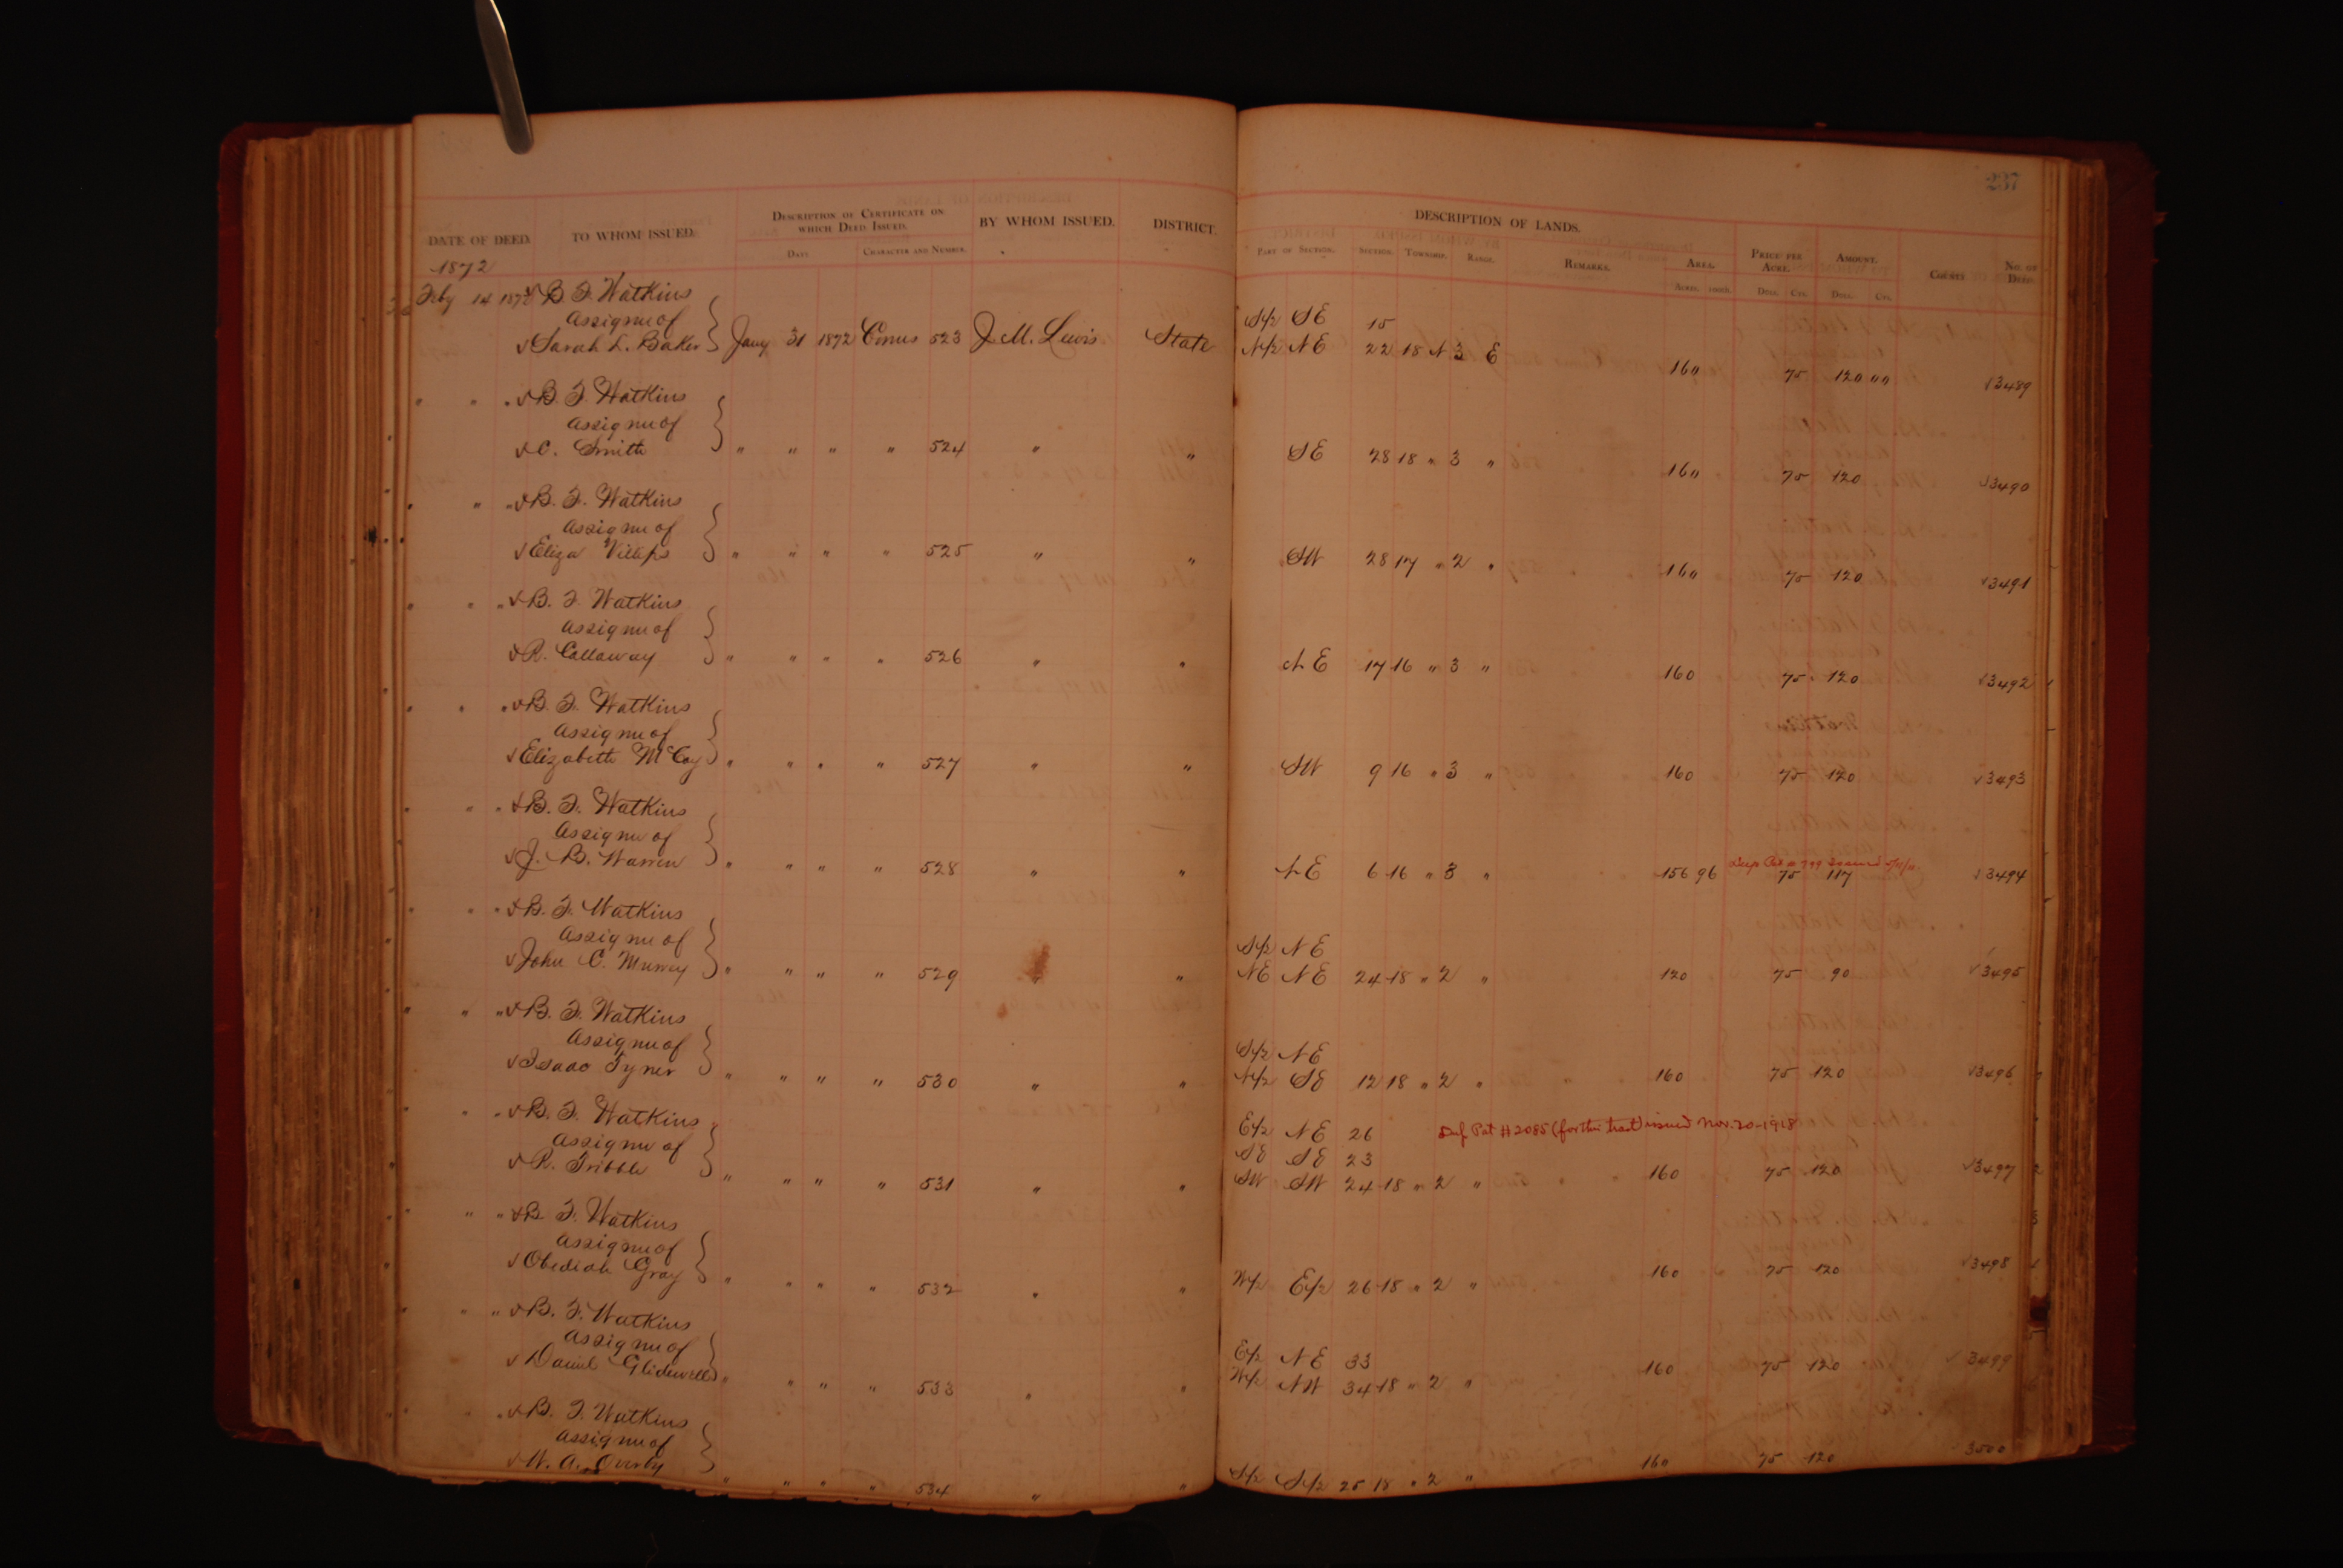 237
DATE OF DEED. TO WHOM ISSUED. DESCRIPTION OF CERTIFICATE ON WHICH DEED ISSUED. BY WHOM ISSUED. DISTRICT. DESCRIPTION OF LANDS. PRICE PER ACRE. AMOUNT. COUNTY NO. OF DEED.
DATE CHARACTER AND NUMBER. PART OF SECTION. SECTION. TOWNSHIP. RANGE. REMARKS. AREA.
ACRES. 100TH. DOLL. CTS. DOLL. CTS.
1872
Feby 14 1872 B. F. Watkins
Assignee of S/2 SE 15
Sarah L. Baker Jany 31 1872 523 J. M. Lewis State N/2 NE 22 18 N 3 E 160 75 120 " " 3489
" " " B. F. Watkins
Assignee of
C. Smith " " " " 524 " " SE 28 18 " 3 " 160 75 120 3490
" " " B. F. Watkins
Assignee of
Eliza " " " " 525 " " SW 28 17 " 2 " 160 75 120 3491
" " " B. F. Watkins
Assignee of
R. Callaway " " " " 526 " " NE 17 16 " 3 " 160 75 120 3492
" " " B. F. Watkins
Assignee of
Elizabeth McCoy " " " " 527 " " SW 9 16 " 3 " 160 75 120 3493
" " " B. F. Watkins
Assignee of
J. B. Warren " " " " 528 " " NE 6 16 " 3 " 156 96 75 117 3494
" " " B. F. Watkins
Assignee of S/2 NE
John C. Murray " " " " 529 " " NE NE 24 18 " 2 " 120 75 90 3495
" " " B. F. Watkins
Assignee of S/2 NE
Isaac Tyner " " " " 530 " " N/2 SE 12 18 " 2 " 160 75 120 3496
" " " B. F. Watkins E/2 NE 26 Dup Pat # 2085 (for this tract) issued Nov. 20-1918
Assignee of SE SE 23
R. Tribble " " " " 531 " " SW SW 24 18 " 2 " 160 75 120 3497
" " " B. F. Watkins
Assignee of
Obediah Gray " " " " 532 " " W/2 E/2 26 18 " 2 " 160 75 120 3498
" " " B. F. Watkins
Assignee of E/2 NE 33
Daniel Glidewell " " " " 533 " " W/2 NW 34 18 " 2 " 160 75 120 3499
" " " B. F. Watkins
Assignee of
W. A. Overby " " " " 534 " " S/2 S/2 25 18 " 2 " 160 75 120 3500